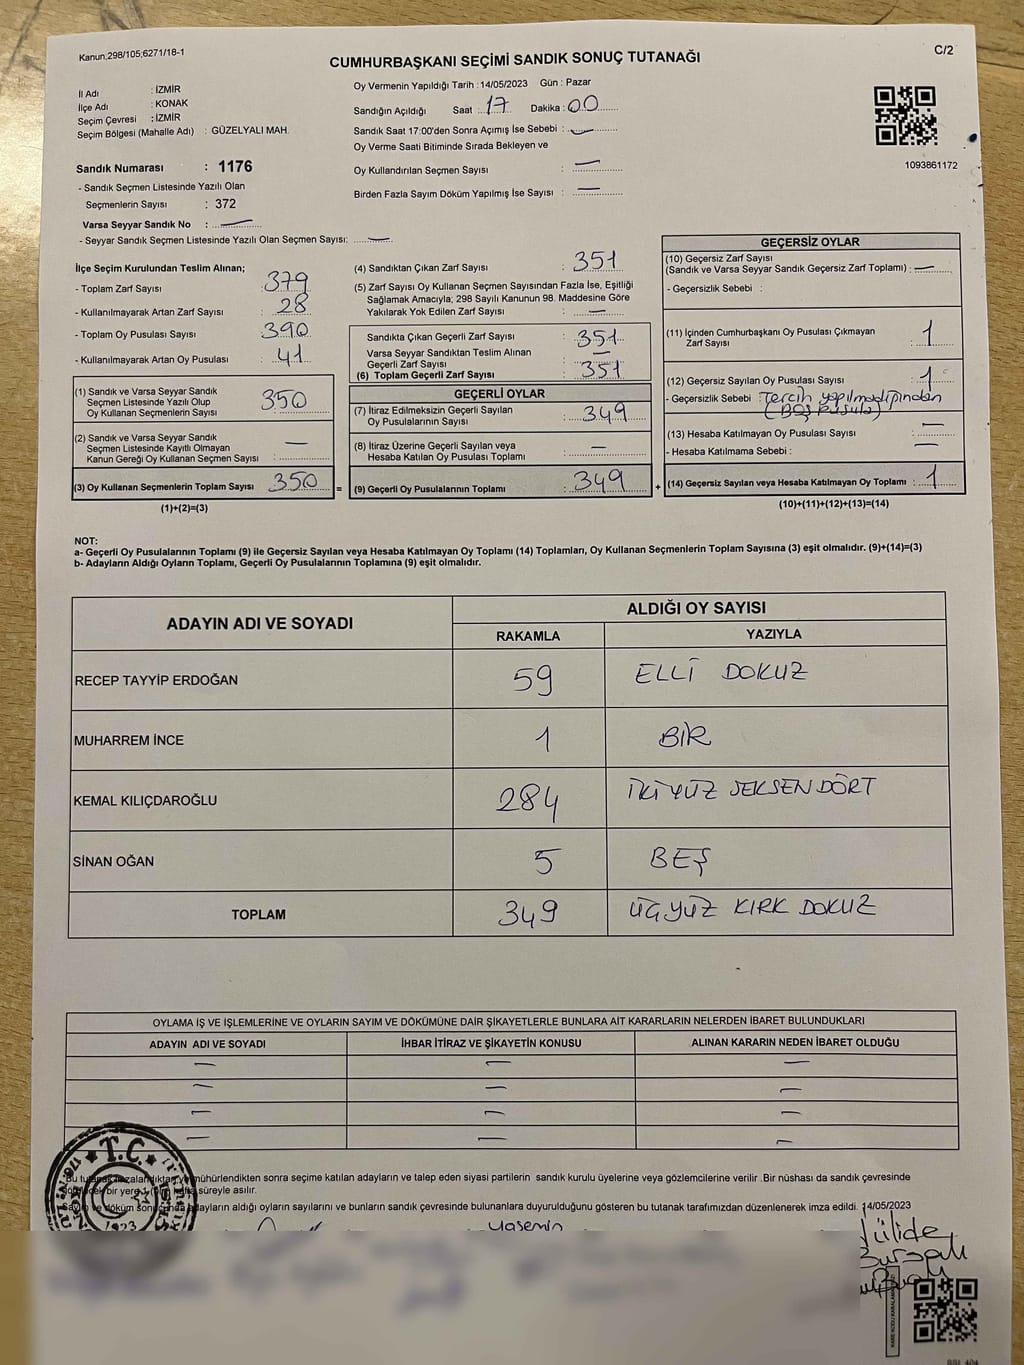 Kanun,298/105,6271/18-1
C/2
CUMHURBAŞKANI SEÇİMİ SANDIK SONUÇ TUTANAĞI
İl Adı : İZMİR
İlçe Adı : KONAK
Seçim Çevresi : İZMİR
Seçim Bölgesi (Mahalle Adı) : GÜZELYALI MAH.
Sandık Numarası : 1176
- Sandık Seçmen Listesinde Yazılı Olan
Seçmenlerin Sayısı : 372
Varsa Seyyar Sandık No : —
- Seyyar Sandık Seçmen Listesinde Yazılı Olan Seçmen Sayısı: —
Oy Vermenin Yapıldığı Tarih : 14/05/2023 Gün : Pazar
Sandığın Açıldığı Saat : 17 Dakika : 00
Sandık Saat 17:00'den Sonra Açımış İse Sebebi : —
Oy Verme Saati Bitiminde Sırada Bekleyen ve
Oy Kullandırılan Seçmen Sayısı : —
Birden Fazla Sayım Döküm Yapılmış İse Sayısı : —
1093861172
İlçe Seçim Kurulundan Teslim Alınan;
- Toplam Zarf Sayısı : 379
- Kullanılmayarak Artan Zarf Sayısı : 28
- Toplam Oy Pusulası Sayısı : 390
- Kullanılmayarak Artan Oy Pusulası : 41
(1) Sandık ve Varsa Seyyar Sandık
Seçmen Listesinde Yazılı Olup
Oy Kullanan Seçmenlerin Sayısı : 350
(2) Sandık ve Varsa Seyyar Sandık
Seçmen Listesinde Kayıtlı Olmayan
Kanun Gereği Oy Kullanan Seçmen Sayısı : —
(3) Oy Kullanan Seçmenlerin Toplam Sayısı : 350 =
(1)+(2)=(3)
(4) Sandıktan Çıkan Zarf Sayısı : 351
(5) Zarf Sayısı Oy Kullanan Seçmen Sayısından Fazla İse, Eşitliği
Sağlamak Amacıyla; 298 Sayılı Kanunun 98. Maddesine Göre
Yakılarak Yok Edilen Zarf Sayısı : —
Sandıkta Çıkan Geçerli Zarf Sayısı : 351
Varsa Seyyar Sandıktan Teslim Alınan
Geçerli Zarf Sayısı : —
(6) Toplam Geçerli Zarf Sayısı : 351
GEÇERLİ OYLAR
(7) İtiraz Edilmeksizin Geçerli Sayılan
Oy Pusulalarının Sayısı : 349
(8) İtiraz Üzerine Geçerli Sayılan veya
Hesaba Katılan Oy Pusulası Toplamı : —
(9) Geçerli Oy Pusulalarının Toplamı : 349 +
GEÇERSİZ OYLAR
(10) Geçersiz Zarf Sayısı
(Sandık ve Varsa Seyyar Sandık Geçersiz Zarf Toplamı) : —
- Geçersizlik Sebebi :
(11) İçinden Cumhurbaşkanı Oy Pusulası Çıkmayan
Zarf Sayısı : 1
(12) Geçersiz Sayılan Oy Pusulası Sayısı : 1
- Geçersizlik Sebebi : Tercih yapılmadığından
(Boş Pusula)
(13) Hesaba Katılmayan Oy Pusulası Sayısı : —
- Hesaba Katılmama Sebebi : —
(14) Geçersiz Sayılan veya Hesaba Katılmayan Oy Toplamı : 1
(10)+(11)+(12)+(13)=(14)
NOT:
a- Geçerli Oy Pusulalarının Toplamı (9) ile Geçersiz Sayılan veya Hesaba Katılmayan Oy Toplamı (14) Toplamları, Oy Kullanan Seçmenlerin Toplam Sayısına (3) eşit olmalıdır. (9)+(14)=(3)
b- Adayların Aldığı Oyların Toplamı, Geçerli Oy Pusulalarının Toplamına (9) eşit olmalıdır.
ADAYIN ADI VE SOYADI ALDIĞI OY SAYISI
RAKAMLA YAZIYLA
RECEP TAYYİP ERDOĞAN 59 ELLİ DOKUZ
MUHARREM İNCE 1 BİR
KEMAL KILIÇDAROĞLU 284 İKİ YÜZ SEKSEN DÖRT
SİNAN OĞAN 5 BEŞ
TOPLAM 349 ÜÇYÜZ KIRK DOKUZ
OYLAMA İŞ VE İŞLEMLERİNE VE OYLARIN SAYIM VE DÖKÜMÜNE DAİR ŞİKAYETLERLE BUNLARA AİT KARARLARIN NELERDEN İBARET BULUNDUKLARI
ADAYIN ADI VE SOYADI İHBAR İTİRAZ VE ŞİKAYETİN KONUSU ALINAN KARARIN NEDEN İBARET OLDUĞU
— — —
— — —
— — —
— — —
T.C.
1923
Bu mühürlendikten sonra seçime katılan adayların ve talep eden siyasi partilerin sandık kurulu üyelerine veya gözlemcilerine verilir .Bir nüshası da sandık çevresinde
bir yere süreyle asılır.
ve döküm adayların aldığı oyların sayılarını ve bunların sandık çevresinde bulunanlara duyurulduğunu gösteren bu tutanak tarafımızdan düzenlenerek imza edildi. 14/05/2023
Yasemin
Jülide